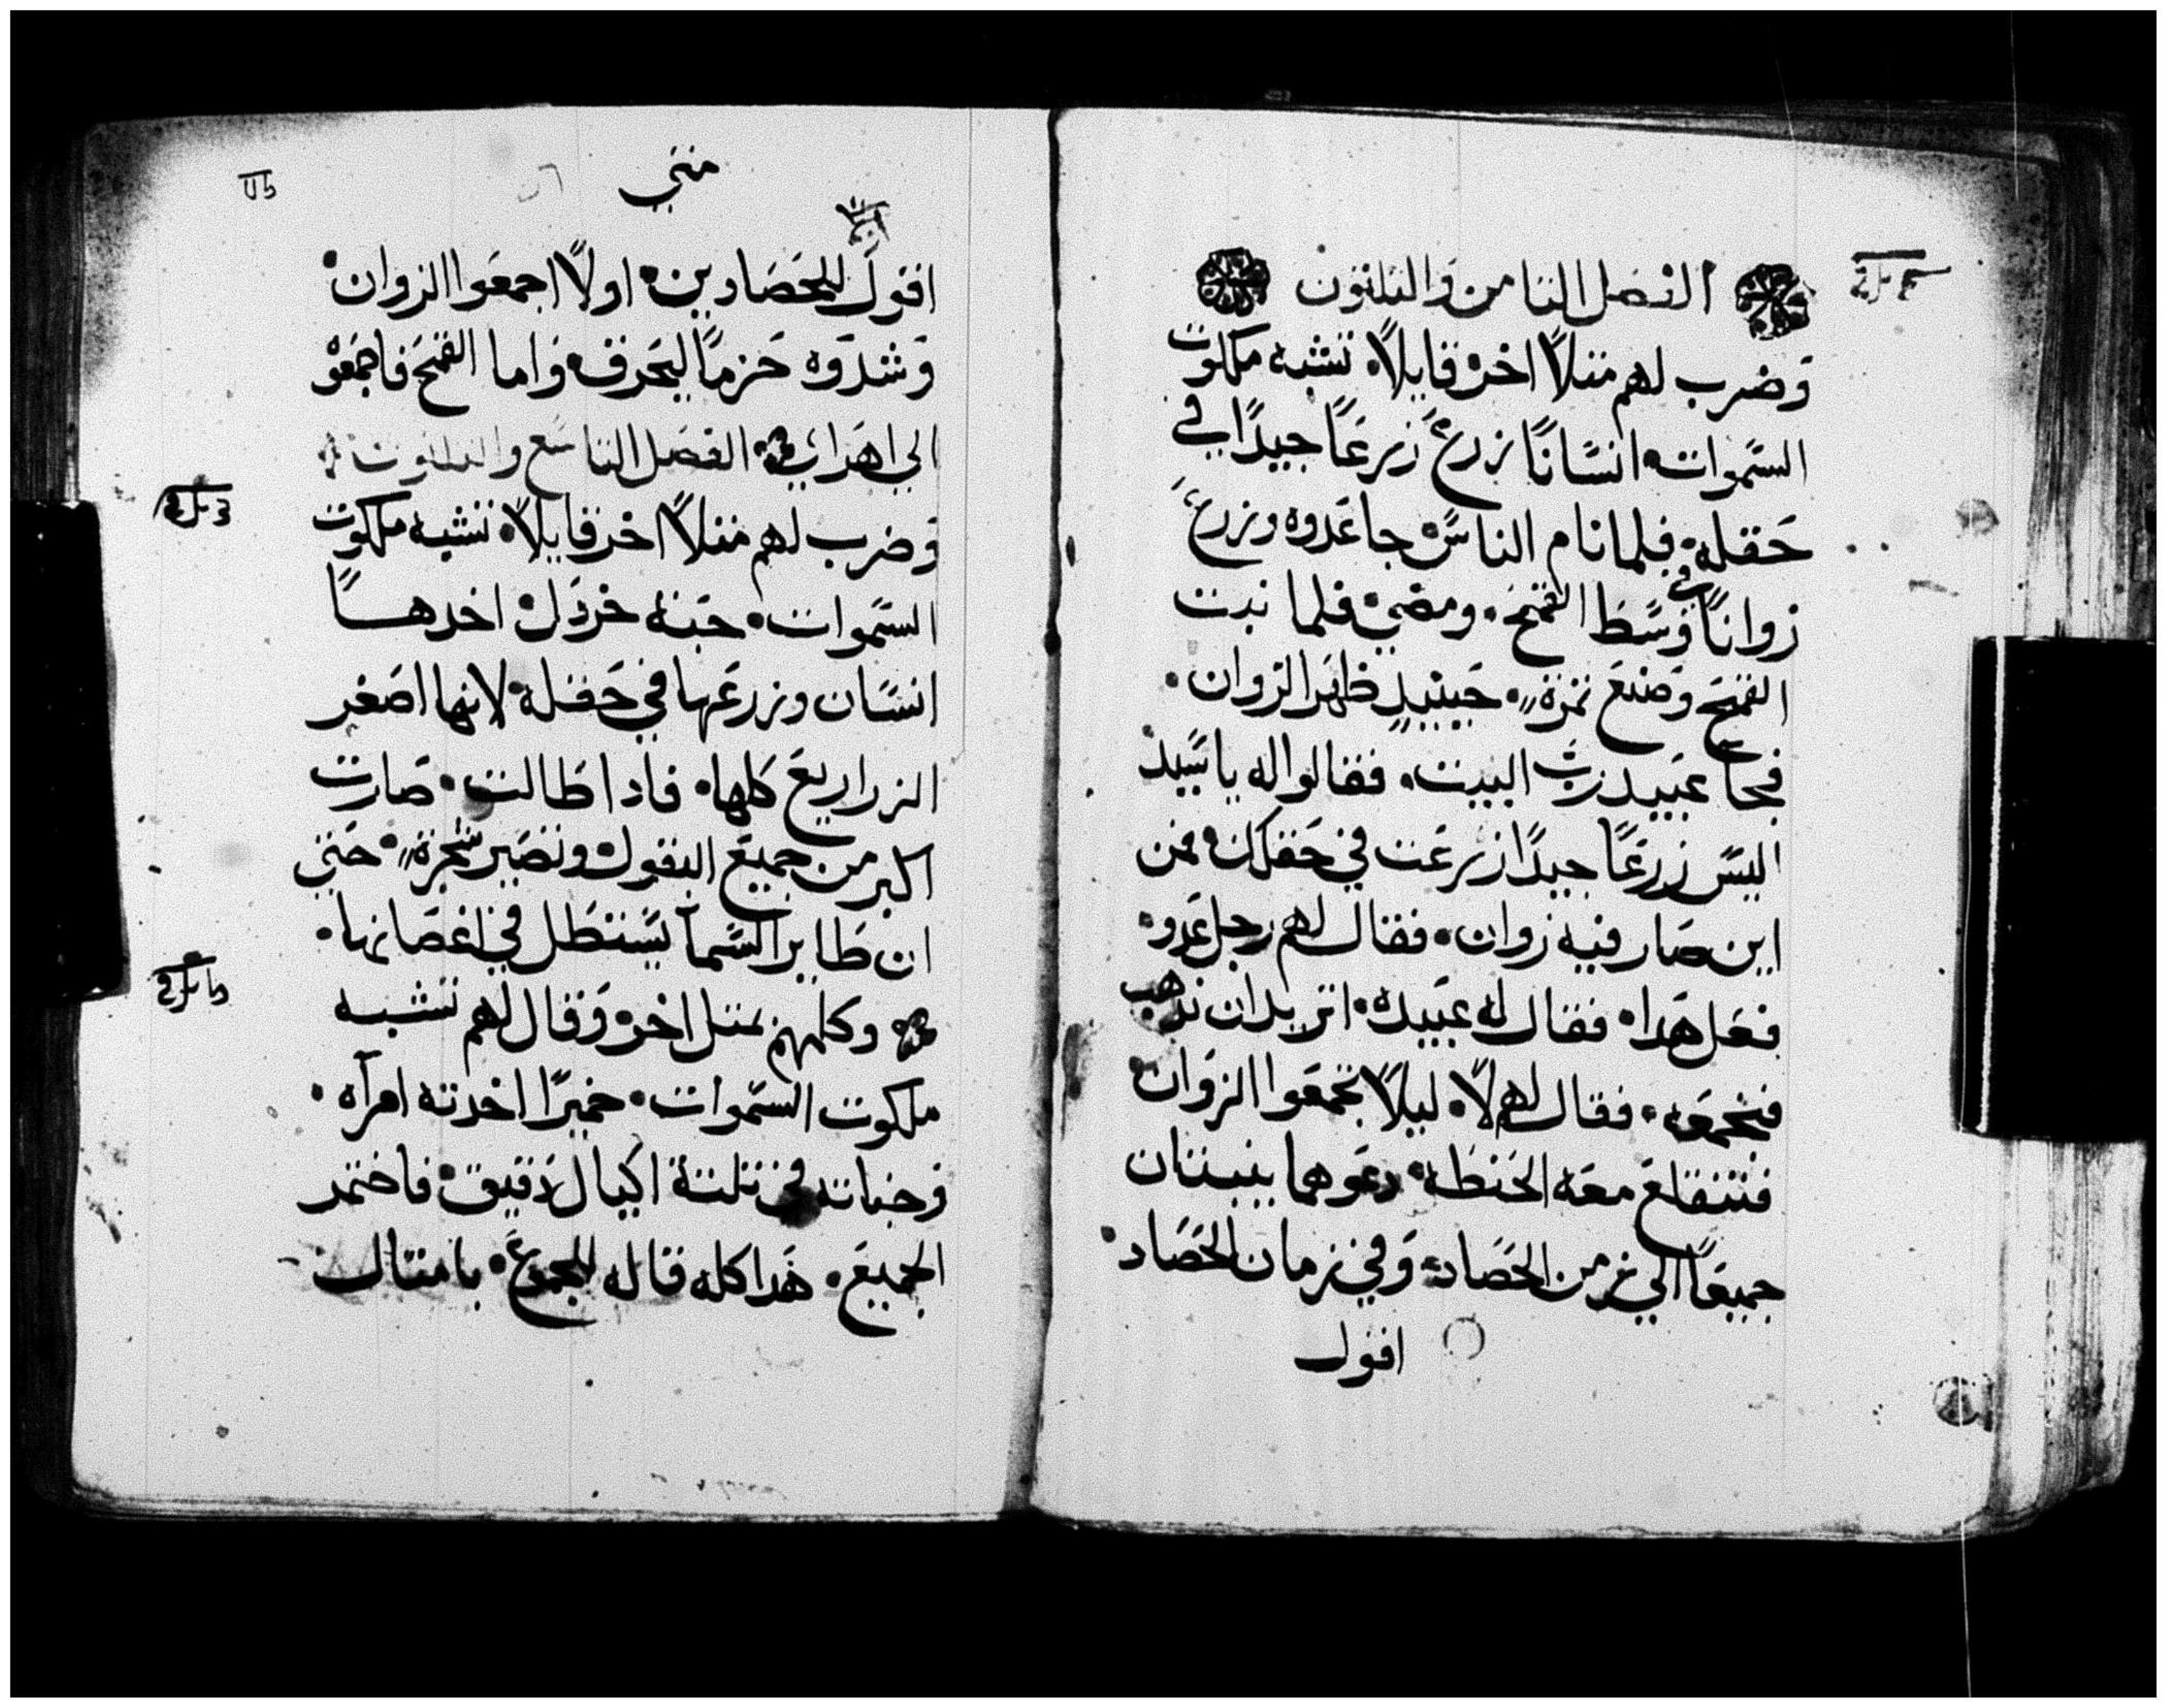 الفصل الثامن والثلثون
وضرب لهم مثلاً اخر قايلاً تشبه ملكوت
السموات انسانًا زرع زرعًا جيدًا في
حقله فلما نام الناس جا عدوه وزرع
زوانًا في وسط القمح ومضي فلما نبت
القمح وصنع ثمرة حينيدٍ ظهر الزوان
فجا عبيد رب البيت فقالوا له يا سيد
اليس زرعًا جيدًا زرعت في حقلك فمن
اين صار فيه زوان فقال لهم رجل عدو
فعل هدا فقال له عبيده اتريد ان ندهب
فنجمعه فقال لهم لا ليلا تجمعوا الزوان
فتنقلع معه الحنطة دعوهما ينبتان
جميعًا الي زمن الحصاد وفي زمان الحصاد
اقول
متي
اقول للحصادين اولاً اجمعوا الزوان
وشدوه حزمًا ليحرق واما القمح فاجمعو
الي اهراي الفصل التاسع والثلثون
وضرب لهم مثلاً اخر قايلاً تشبه ملكوت
السموات حبة خردل اخدها
انسان وزرعها في حقله لانها اصغر
الزراريع كلها فادا طالت صارت
اكبر من جميع البقول وتصير شجرة حتي
ان طاير السما يستظل في اغصانها
وكلمهم بمثل اخر وقال لهم تشبه
ملكوت السموات خميرًا اخدته امرآه
وخباته في ثلثة اكيال دقيق فاختمر
الجميع هدا كله قاله للجموع بامثال